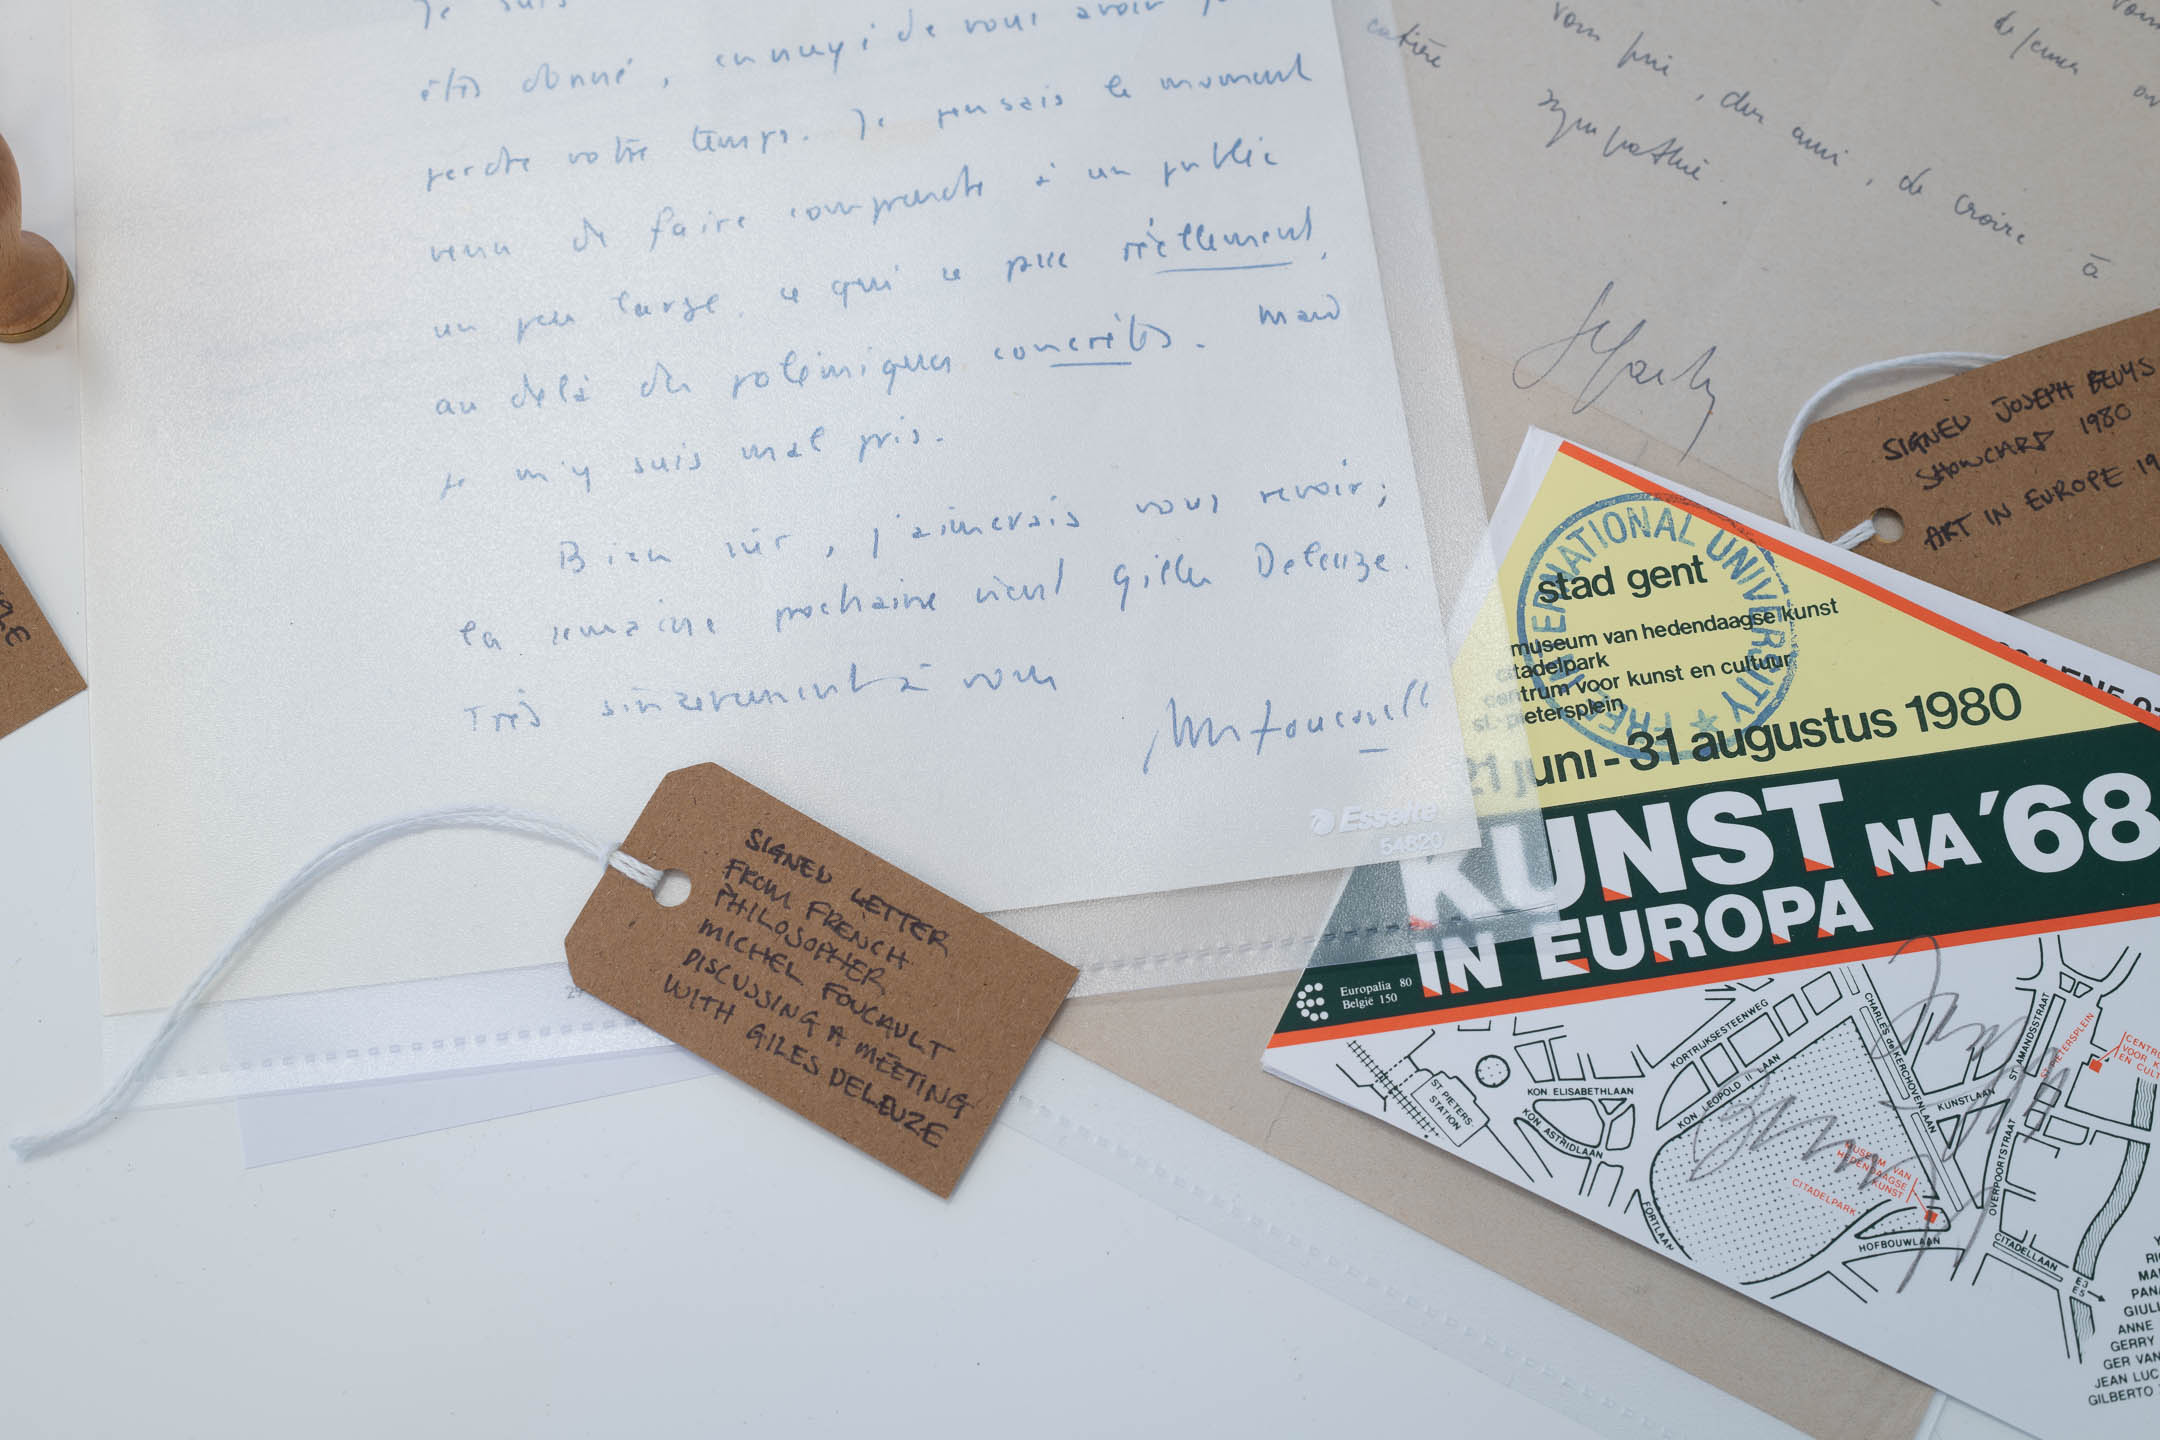 Je suis
êtes donné, ennuyé de vous avoir
perdre votre temps. Je pensais le moment
venu de faire comprendre à un public
un peu large, ce qui se passe réellement,
au delà des polémiques concrètes. Mais
je m'y suis mal pris.
Bien sûr, j'aimerais vous revoir;
la semaine prochaine vient Gilles Deleuze.
Très sincèrement à vous
Esselte
54820
SIGNED LETTER
FROM FRENCH
PHILOSOPHER
MICHEL FOUCAULT
DISCUSSING A MEETING
WITH GILES DELEUZE
entière
vous prie, cher ami, de croire à
sympathie.
SIGNED JOSEPH BEUYS
SHOWCARD 1980
ART IN EUROPE 19
FREE INTERNATIONAL UNIVERSITY
stad gent
museum van hedendaagse kunst
citadelpark
centrum voor kunst en cultuur
st.-pietersplein
21 juni - 31 augustus 1980
KUNST NA '68
IN EUROPA
Europalia 80
België 150
KORTRIJKSESTEENWEG
CHARLES de KERCHOVENLAAN
ST AMANDSSTRAAT
ST PIETERSPLEIN
CENTR
VOOR K
EN CULT
ST. PIETERS
STATION
KON ELISABETHLAAN
KON LEOPOLD II LAAN
KON ASTRIDLAAN
KUNSTLAAN
OVERPOORTSTRAAT
MUSEUM VAN
HEDENDAAGSE
KUNST
CITADELPARK
FORTLAAN
HOFBOUWLAAN
CITADELLAAN
E3
E5
Y
RI
MA
PAN
GIUL
ANNE
GERRY
GER VAN
JEAN LUC
GILBERTO